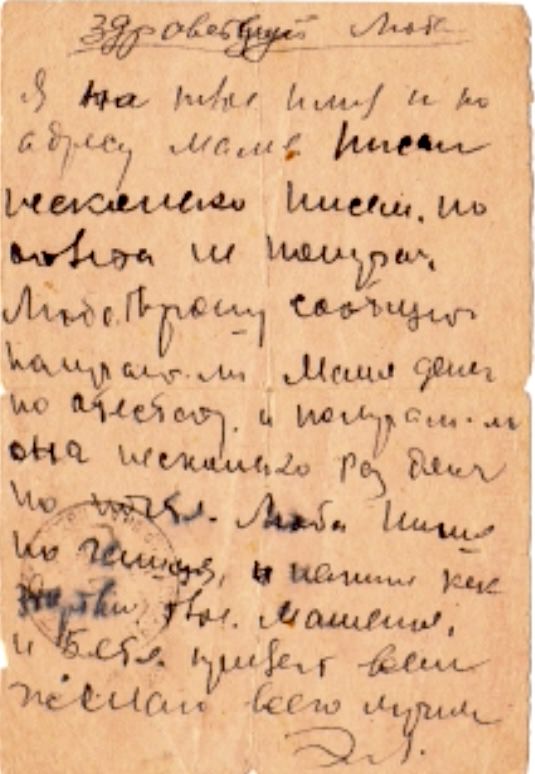 Здравствуй Люба
Я на твое имя и по
адресу маме писал
несколько писем, но
ответа не получал.
Люба. Прошу сообщи
получает ли Маша денег
по атестату, и получала ли
она несколько раз денег
по почте. Люба пиши
по, и напиши как
здоровье твое. Машеньке,
и Бете. привет всем
желаю всего лучшего